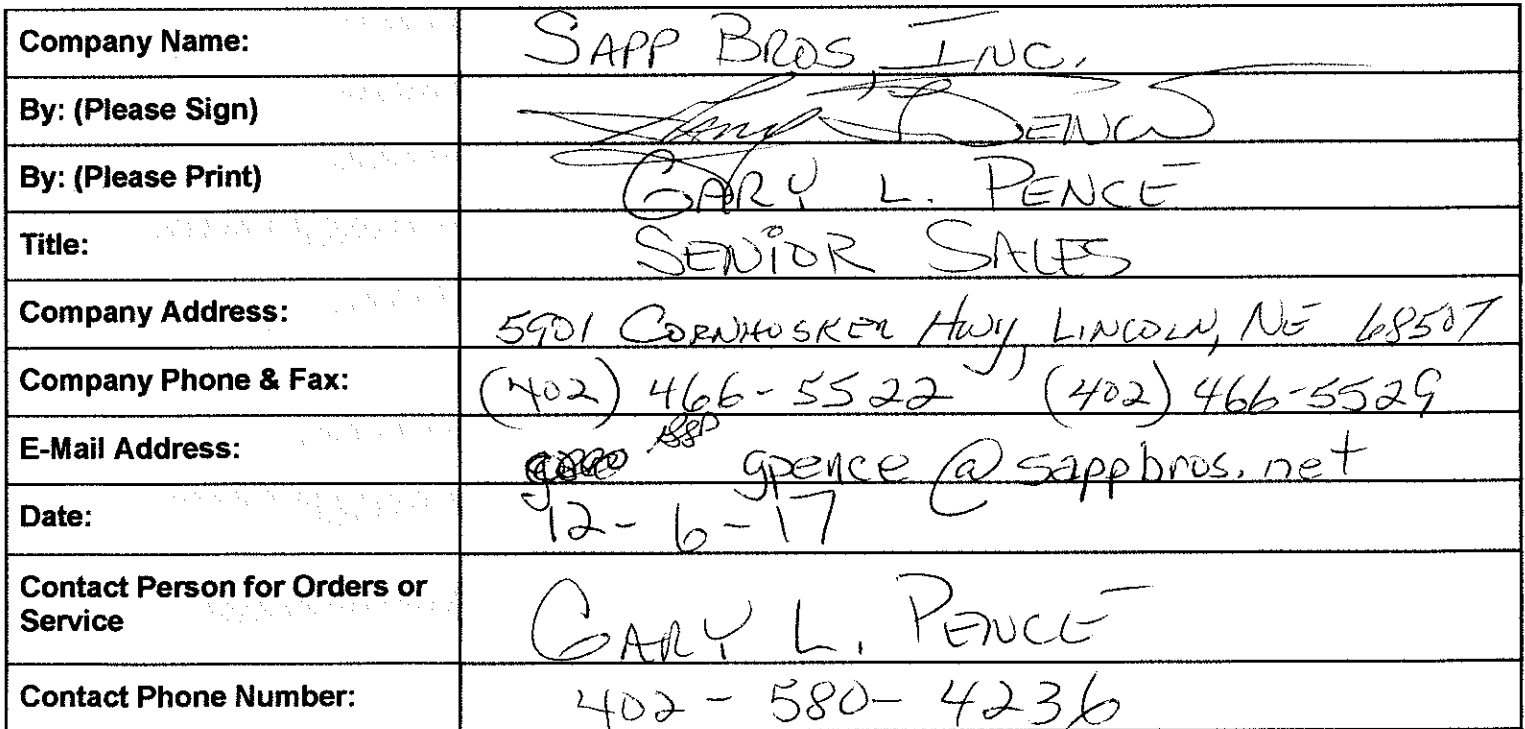 Company Name: SAPP BROS, INC.
By: (Please Sign)
By: (Please Print) GARY L. PENCE
Title: SENIOR SALES
Company Address: 5901 CORNHUSKER HWY, LINCOLN, NE 68507
Company Phone & Fax: (402) 466-5522 (402) 466-5529
E-Mail Address: gpence@sappbros.net
Date: 12-6-17
Contact Person for Orders or
Service GARY L. PENCE
Contact Phone Number: 402-580-4236